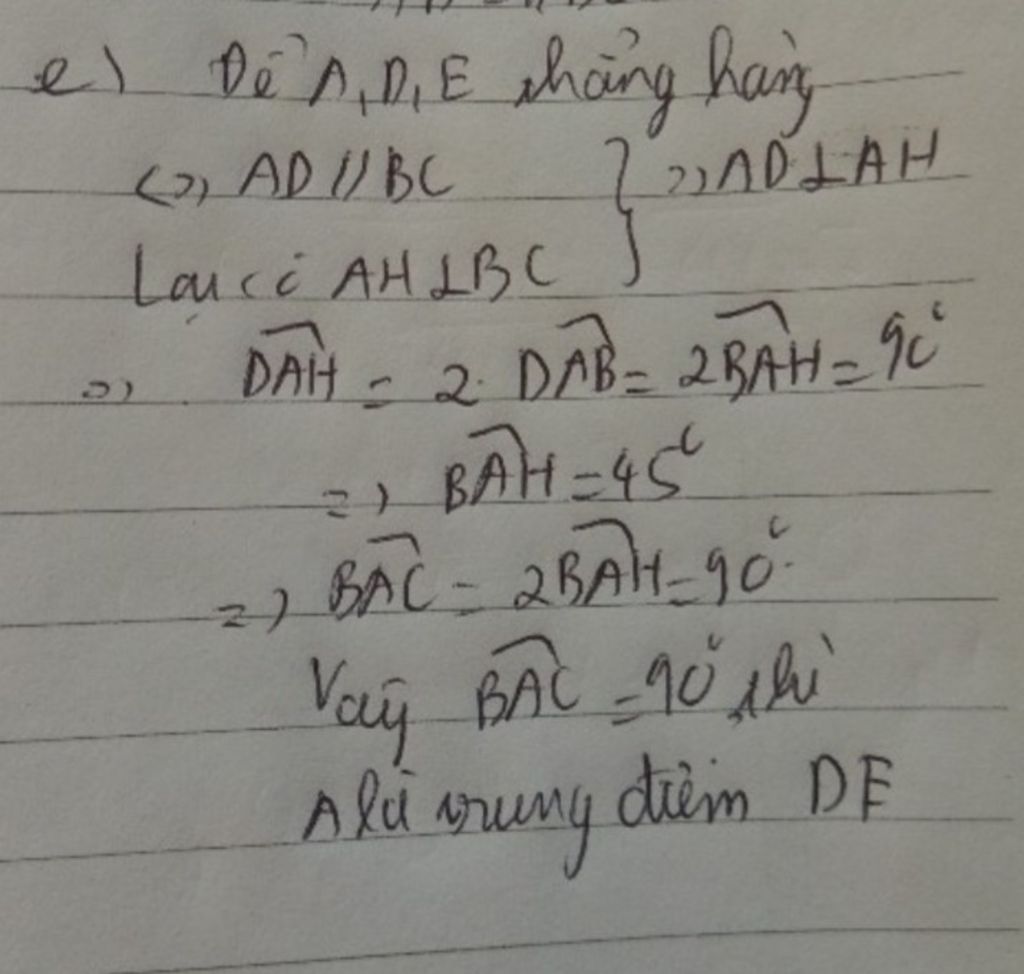 e) Để A, D, E thẳng hàng
<=> AD // BC } => AD ⊥ AH
Lại có AH ⊥ BC
=> \widehat{DAH} = 2. \widehat{DAB} = 2\widehat{BAH} = 90°
=> \widehat{BAH} = 45°
=> \widehat{BAC} = 2\widehat{BAH} = 90°.
Vậy \widehat{BAC} = 90° thì
A là trung điểm DE